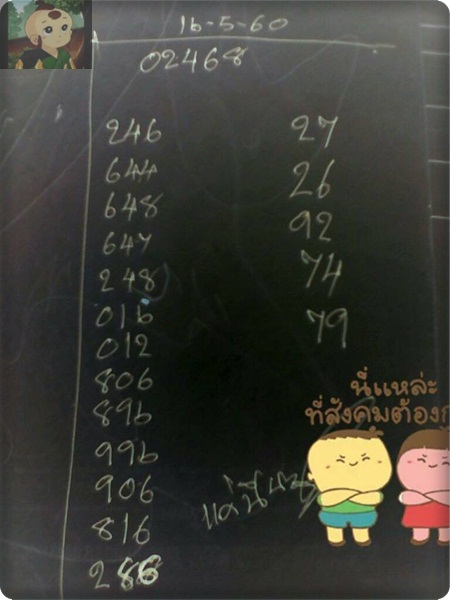 16-5-60
02468
246
644
648
647
248
016
012
806
896
996
906
816
286
27
26
92
74
79
นี่แหล่ะ
ที่สังคมต้อง